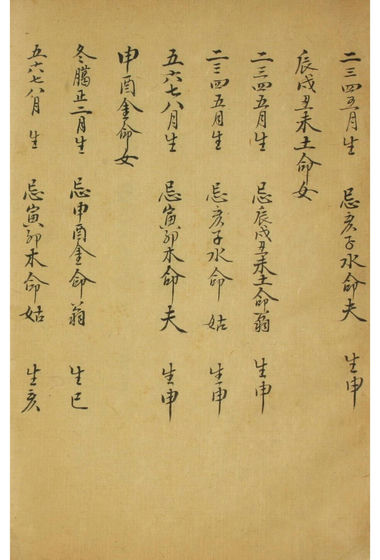 二三四五月生　忌亥子水命夫　生申
辰戌丑未土命女
二三四五月生　忌辰戌丑未土命翁　生申
二三四五月生　忌亥子水命姑　生申
五六七八月生　忌寅卯木命夫　生申
申酉金命女
冬臈正二月生　忌申酉金命翁　生巳
五六七八月生　忌寅卯木命姑　生亥